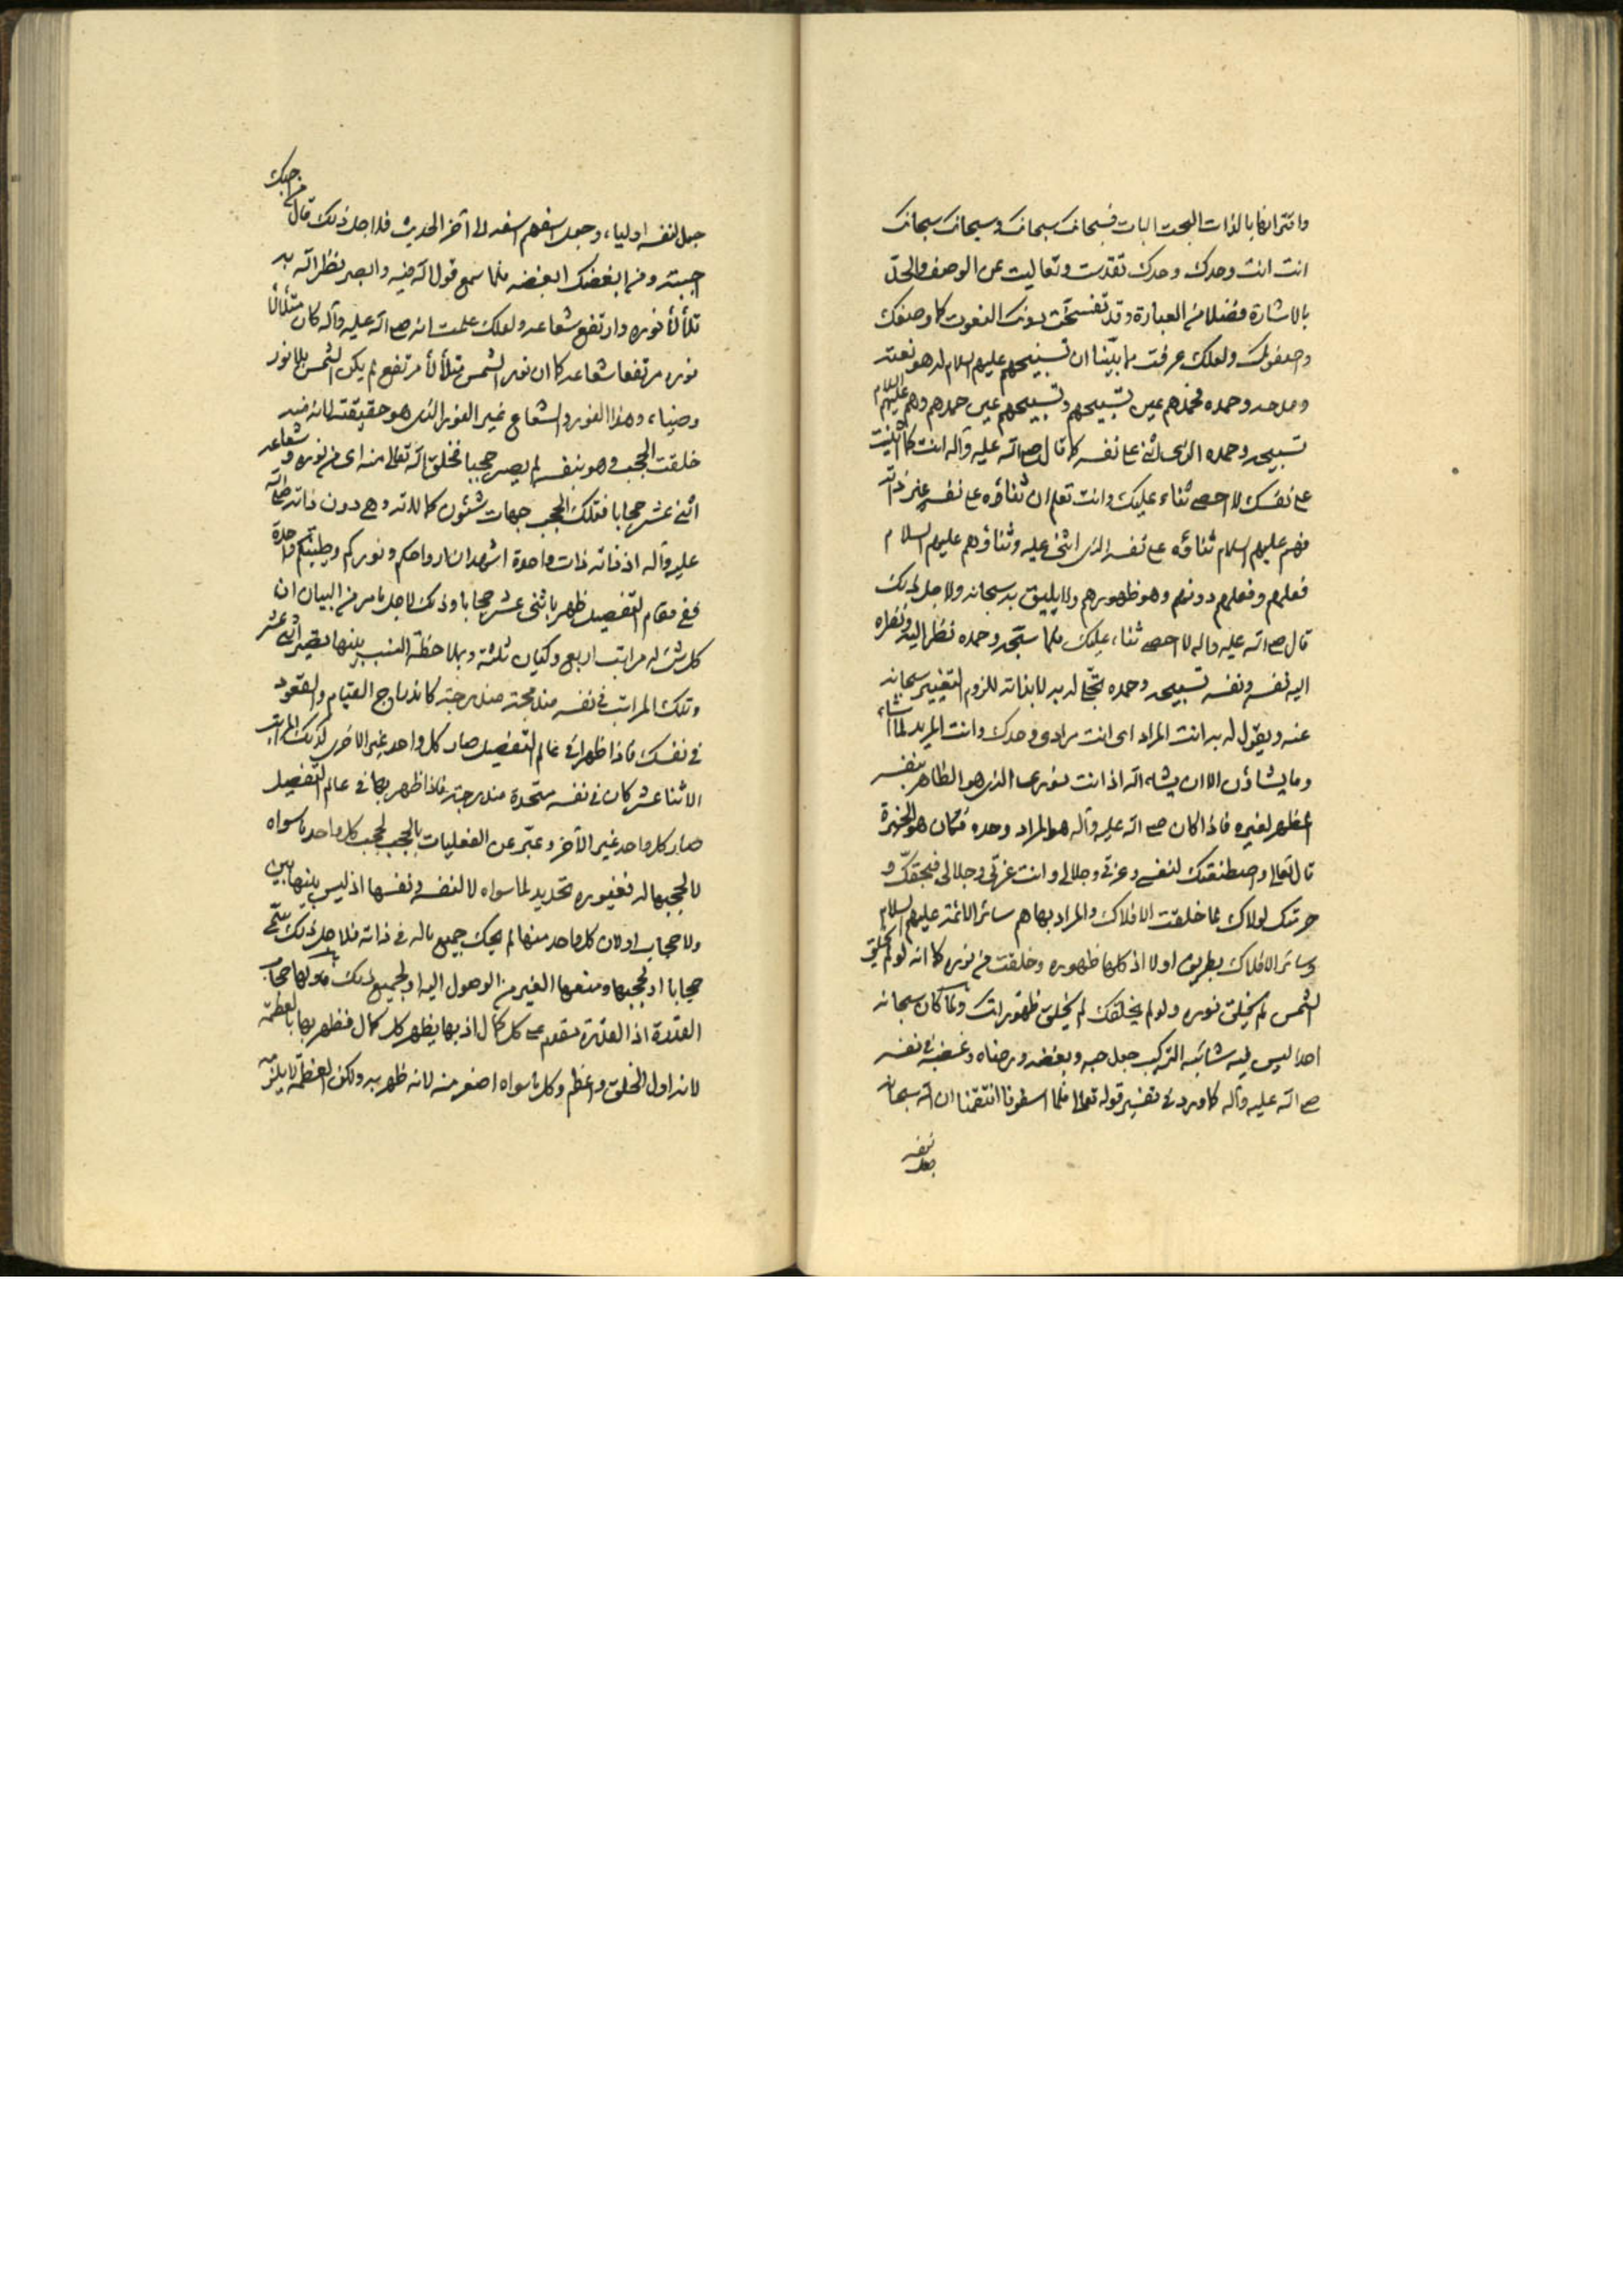 واقترانها بالذات البحت البات فسبحانك سبحانك وسبحانك سبحانك
انت انت وحدك وحدك تقدست وتعاليت عن الوصف والحد
بالاشارة فضلا من العبارة وقد تفسخت دونك النعوت كما وصفوك
وصفوك ولعلك عرفت مما بيّنا ان تسبيحهم عليهم السلام له هو نعته
وحمده فحمدهم عين تسبيحهم وتسبيحهم عين حمدهم وهم عليهم السلام
تسبيحه وحمده الذي اثنى على نفسه كما قال صلى الله عليه وآله انت كما اثنيت
على نفسك لا احصي ثناء عليك وانت تعلم ان ثناؤه على نفسه غير ذاته
فهم عليهم السلام ثناؤه على نفسه الذي اثنى عليه وثناؤهم عليهم السلام
فعلهم وفعلهم دونهم وهو ظهورهم ولا يليق به سبحانه ولاجل ذلك
قال صلى الله عليه واله لا احصي ثناء عليك فلما سبّحه وحمده نظر اليه ونظره
اليه نفسه ونفسه تسبيحه وحمده تجلى له به لا بذاته للزوم التغيير سبحانه
عنه ويقول له به انت المراد اي انت مرادي وحدك وانت المريد لما اشاء
وما يشاؤن الا ان يشاء الله اذ انت نوري الذي هو الظاهر بنفسه
المظهر لغيره فاذا كان صلى الله عليه وآله هو المراد وحده فكان هو الخيرة
قال تعالى واصطنعتك لنفسي وعزتي وجلالي وانت عزتي وجلالي فبحقك و
حرمتك لولاك لما خلقت الافلاك والمراد بها هم سائر الائمة عليهم السلام
وسائر الافلاك بطريق اولى اذ كلها ظهوره وخلقت من نوره كما انه لو لم يخلق
الشمس لم يخلق نوره ولو لم يخلقك لم يخلق ظهوراتك ولما كان سبحانه
احدا ليس فيه شائبة التركيب جعل حبه وبغضه ورضاه وغضبه في نفسه
صلى الله عليه وآله كما ورد في تفسير قوله تعالى فلما اسفونا انتقمنا ان الله سبحانه
جعل لنفسه اولياء وجعل اسفهم اسفه الى آخر الحديث فلاجل ذلك قال من احبك
احببته ومن ابغضك ابغضه فلما سمع قول الله فيه وابصر نظر الله به
تلألأ نوره وارتفع شعاعه ولعلك علمت انه صلى الله عليه وآله كان متلألأ
نوره مرتفعا شعاعه كما ان نور الشمس متلألأ مرتفع لم يكن الشمس بلا نور
وضياء وهذا النور والشعاع غير النور الذي هو حقيقته لانه منه
خلقت الحجب وهو بنفسه لم يصير حجبا فخلق الله تعالى منه اي من نوره وشعاعه
اثنى عشر حجابا فتلك الحجب جهات شئون كمالاته وهي دون ذاته صلى الله
عليه وآله اذ ذاته ذات واحدة اشهد ان ارواحكم ونوركم وطينتكم واحدة
ففي مقام التفصيل ظهر باثنى عشر حجابا وذلك لاجل ما مر من البيان ان
كل شئ له مراتب اربع وكيان ثلثة وبملاحظة النسب بينها يصير اثنى عشر
وتلك المراتب في نفسه مندمجة مندرجة كاندراج القيام والقعود
في نفسك فاذا ظهرا في عالم التفصيل صار كل واحد غير الاخر كذلك المراتب
الاثنا عشر كان في نفسه متحدة مندرجة فاذا ظهر بها في عالم التفصيل
صار كل واحد غير الآخر وعبّر عن الفعليات بالحجب لحجب كل واحد ما سواه
لا لحجبها له فغيوره تحديد لما سواه لا لنفسه ونفسها اذ ليس بينها بين
ولا حجاب او لان كل واحد منها لم يحك جميع ما له في ذاته فلاجل ذلك سمي
حجابا او لحجبها ومنعها الغير من الوصول اليه او لجميع ذلك فاولها حجاب
القدرة اذ القدرة مقدم على كل كمال اذ بها يظهر كل كمال فظهر بها بالعظمة
لانه اول الخلق واعظم وكل ما سواه اصغر منه لانه ظهر به ولكن العظمة لا يلزمه